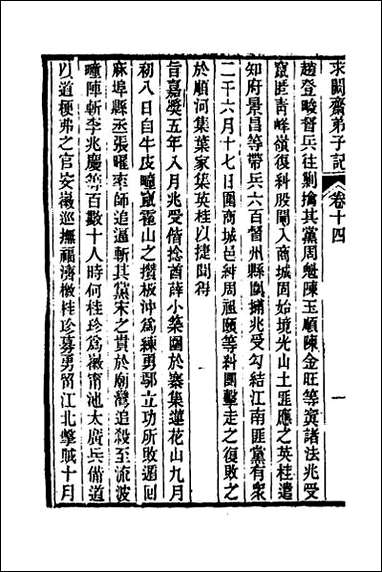 求闕齋弟子記
卷十四
一
趙登畯督兵往剿擒其黨周魁陳玉順陳金旺等寘諸法兆受
竄匿青峰嶺復糾股闖入商城固始境光山土匪應之英桂遣
知府景昌等帶兵六百督州縣圍捕兆受勾結江南匪黨有眾
二千六月十七日圍商城邑紳周祖頤等糾團擊走之復敗之
於順河集葉家集英桂以捷聞得
旨嘉奬五年八月兆受偕捻酋薛小築圩於寨集蓮花山九月
初八日自牛皮疃竄霍山之攢板沖為練勇鄢立功所敗遁回
麻埠縣丞張曜率師追逼斬其黨宋之貴於廟灣追殺至流波
疃陣斬李兆慶等百數十人時何桂珍為徽甯池太廣兵備道
以道梗弗之官安徽巡撫福濟檄桂珍募勇留江北擊賊十月